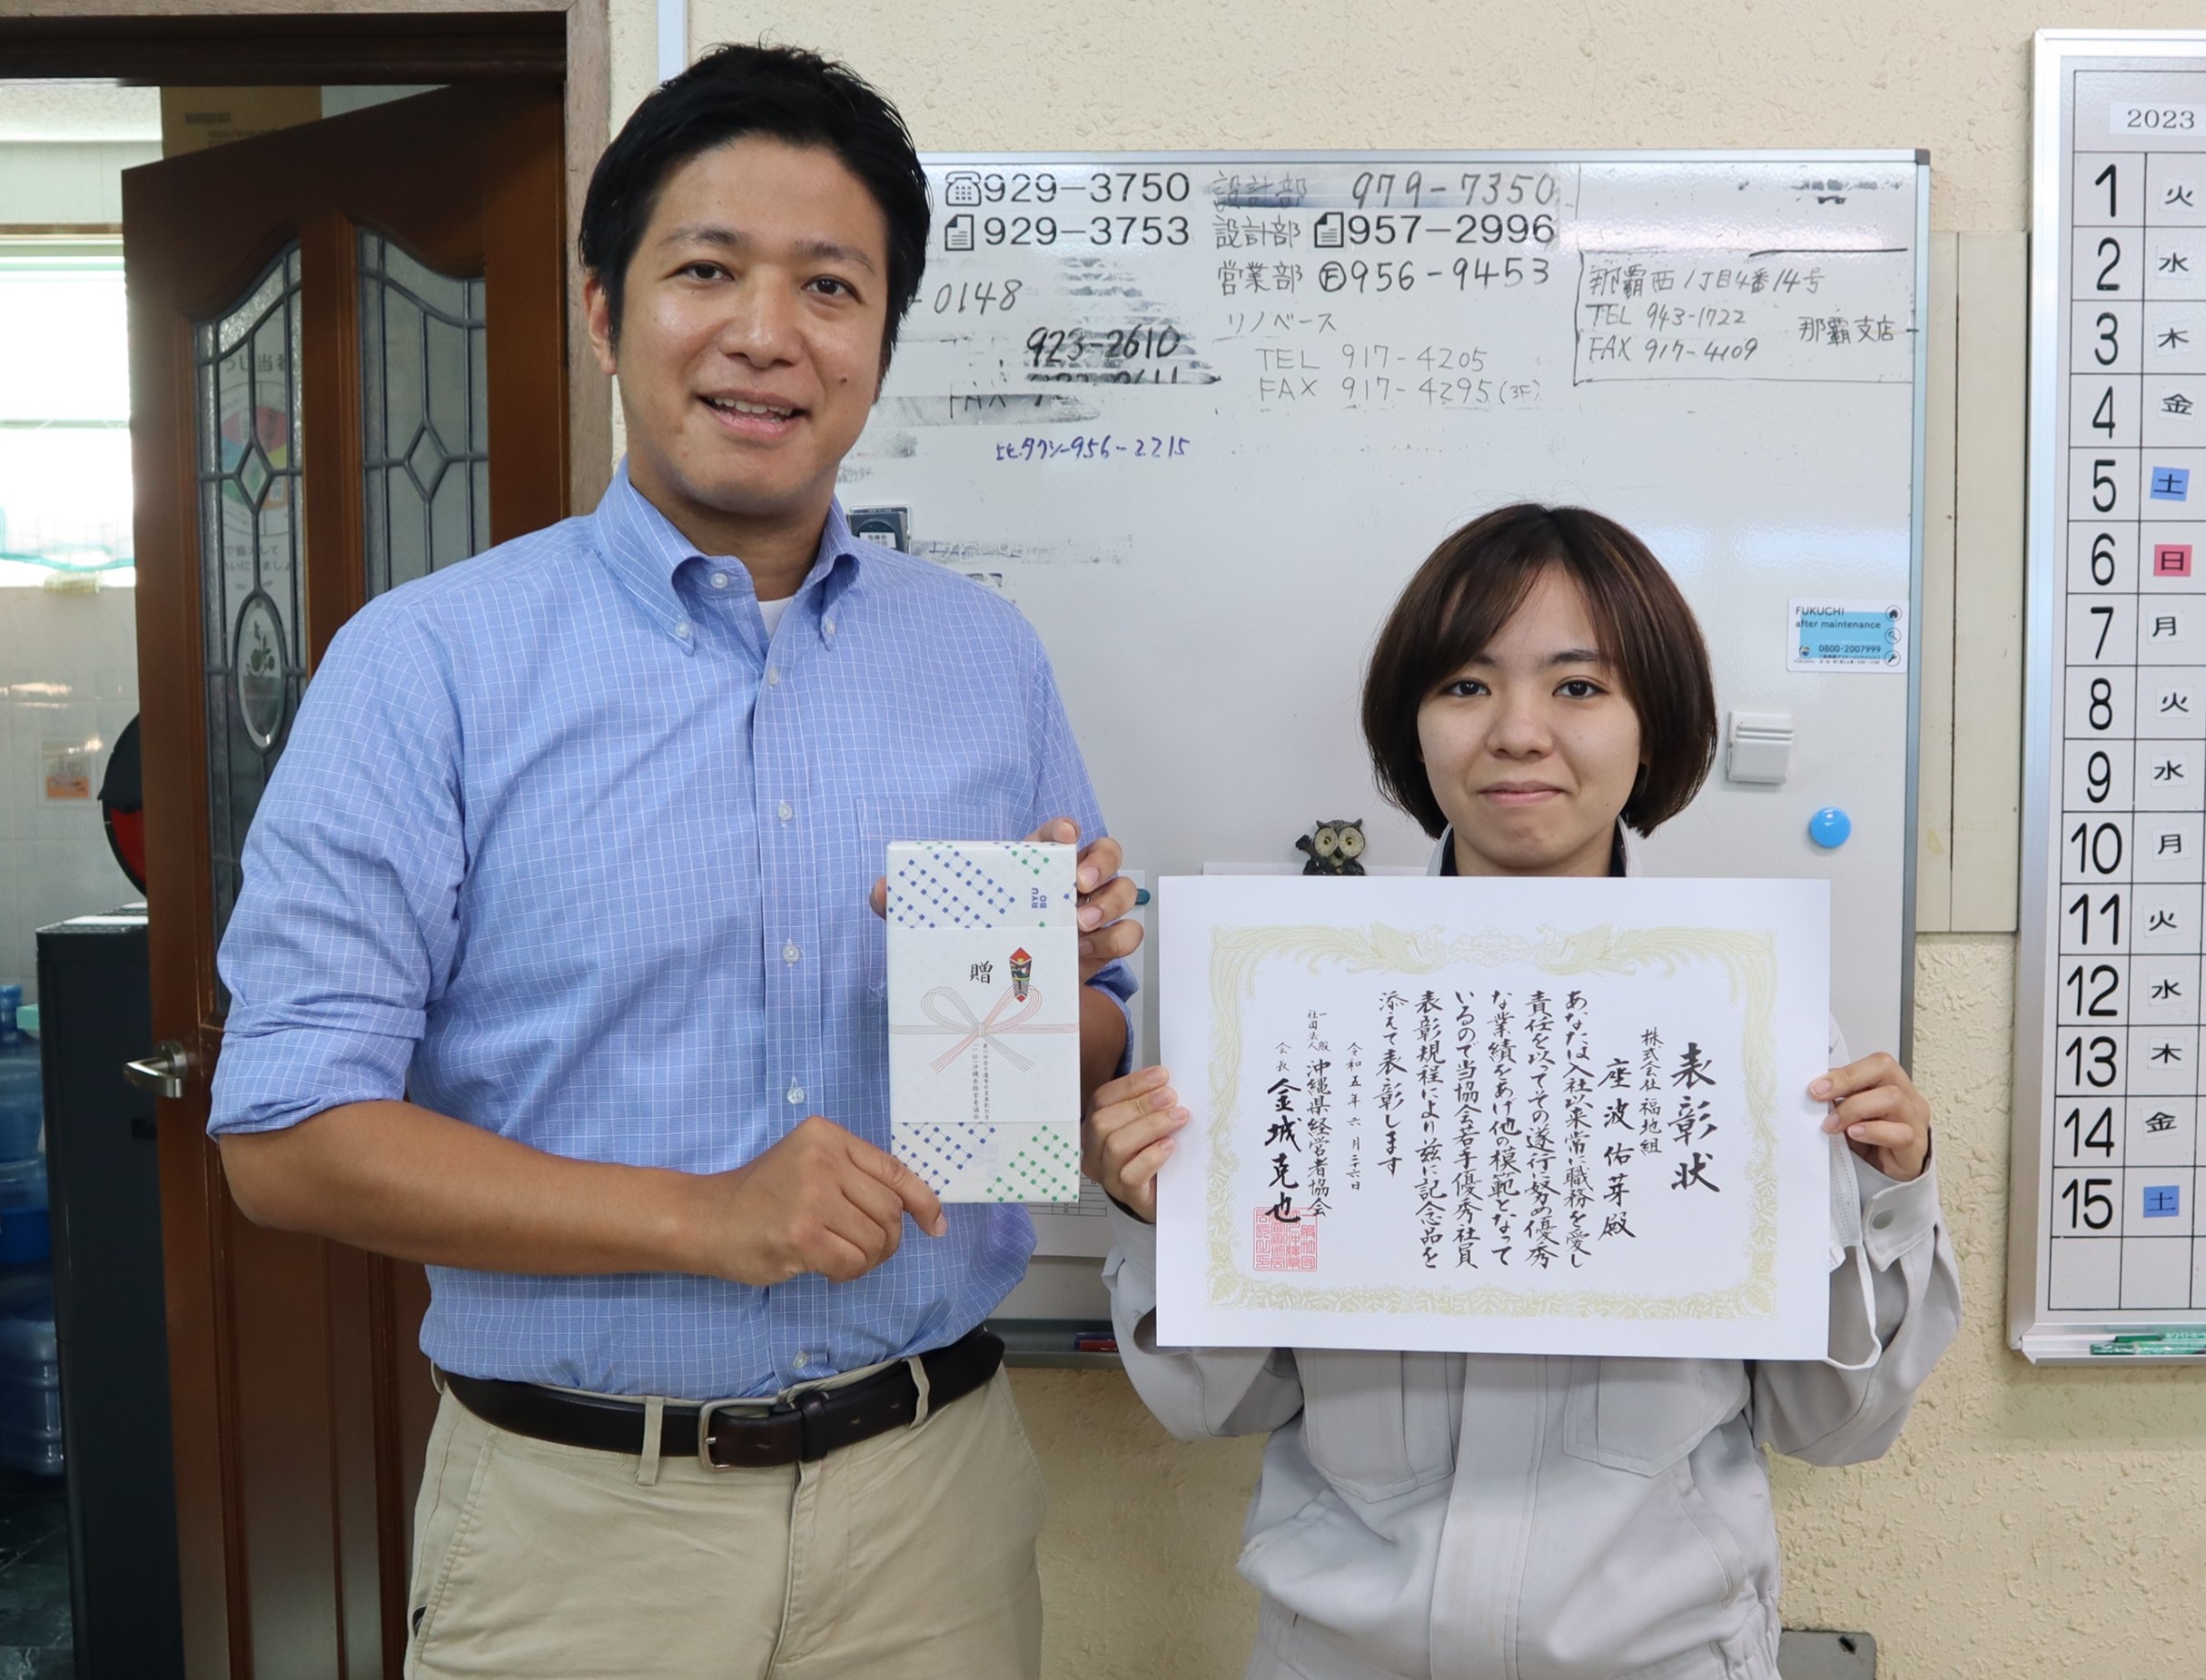 929-3750
929-3753
-0148
923-2610
FAX
比.タクシー956-2215
設計部 979-7350
設計部 957-2996
営業部 Ⓕ956-9453
リノベース
TEL 917-4205
FAX 917-4295(3F)
那覇西1丁目4番14号
TEL 943-1722
FAX 917-4109
那覇支店
FUKUCHI
after maintenance
0800-2007999
2023
1 火
2 水
3 木
4 金
5 土
6 日
7 月
8 火
9 水
10 月
11 火
12 水
13 木
14 金
15 土
RYU
BO
贈
表彰状
株式会社 福地組
座波佑芽殿
あなたは入社以来常に職務を愛し
責任を以ってその遂行に努め優秀
な業績をあげ他の模範となって
いるので当協会若手優秀社員
表彰規程により茲に記念品を
添えて表彰します
令和五年六月二十六日
一般社団法人 沖縄県経営者協会
会長 金城克也